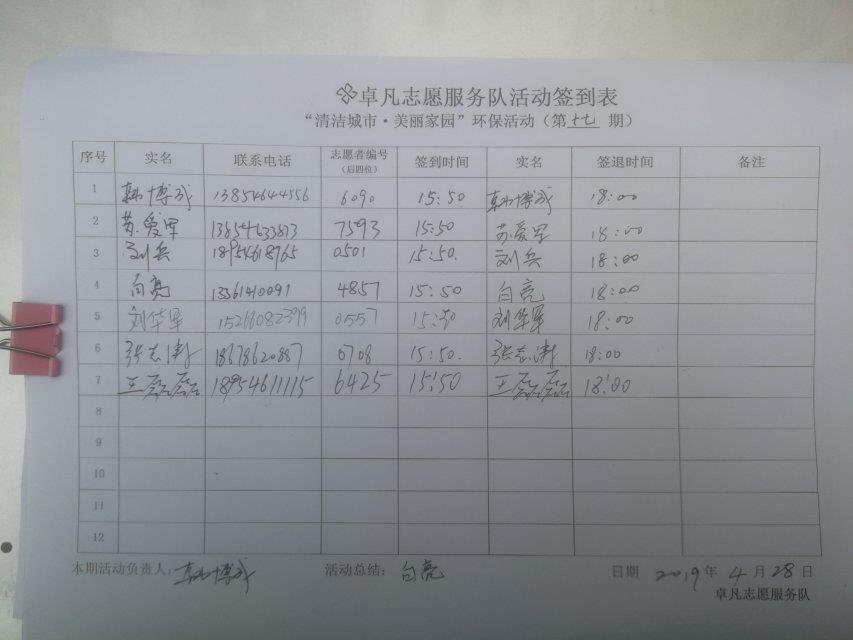 卓凡志愿服务队活动签到表
“清洁城市·美丽家园”环保活动（第十七期）
序号 实名 联系电话 志愿者编号（后四位） 签到时间 实名 签退时间 备注
1 韩博成 13854644556 6090 15:50 韩博成 18:00
2 苏爱军 7593 15:50 苏爱军 18:00
3 刘兵 18954618765 0501 15:50. 刘兵 18:00
4 白亮 13361410091 4857 15:50 白亮 18:00
5 刘华军 15266082399 0557 15:50 刘华军 18:00
6 张志 18678620887 0708 15:50. 张志 18:00
7 王磊磊 18954611115 6425 15:50 王磊磊 18:00
8
9
10
11
12
本期活动负责人：韩博成 活动总结：白亮 日期 2019年4月28日
卓凡志愿服务队